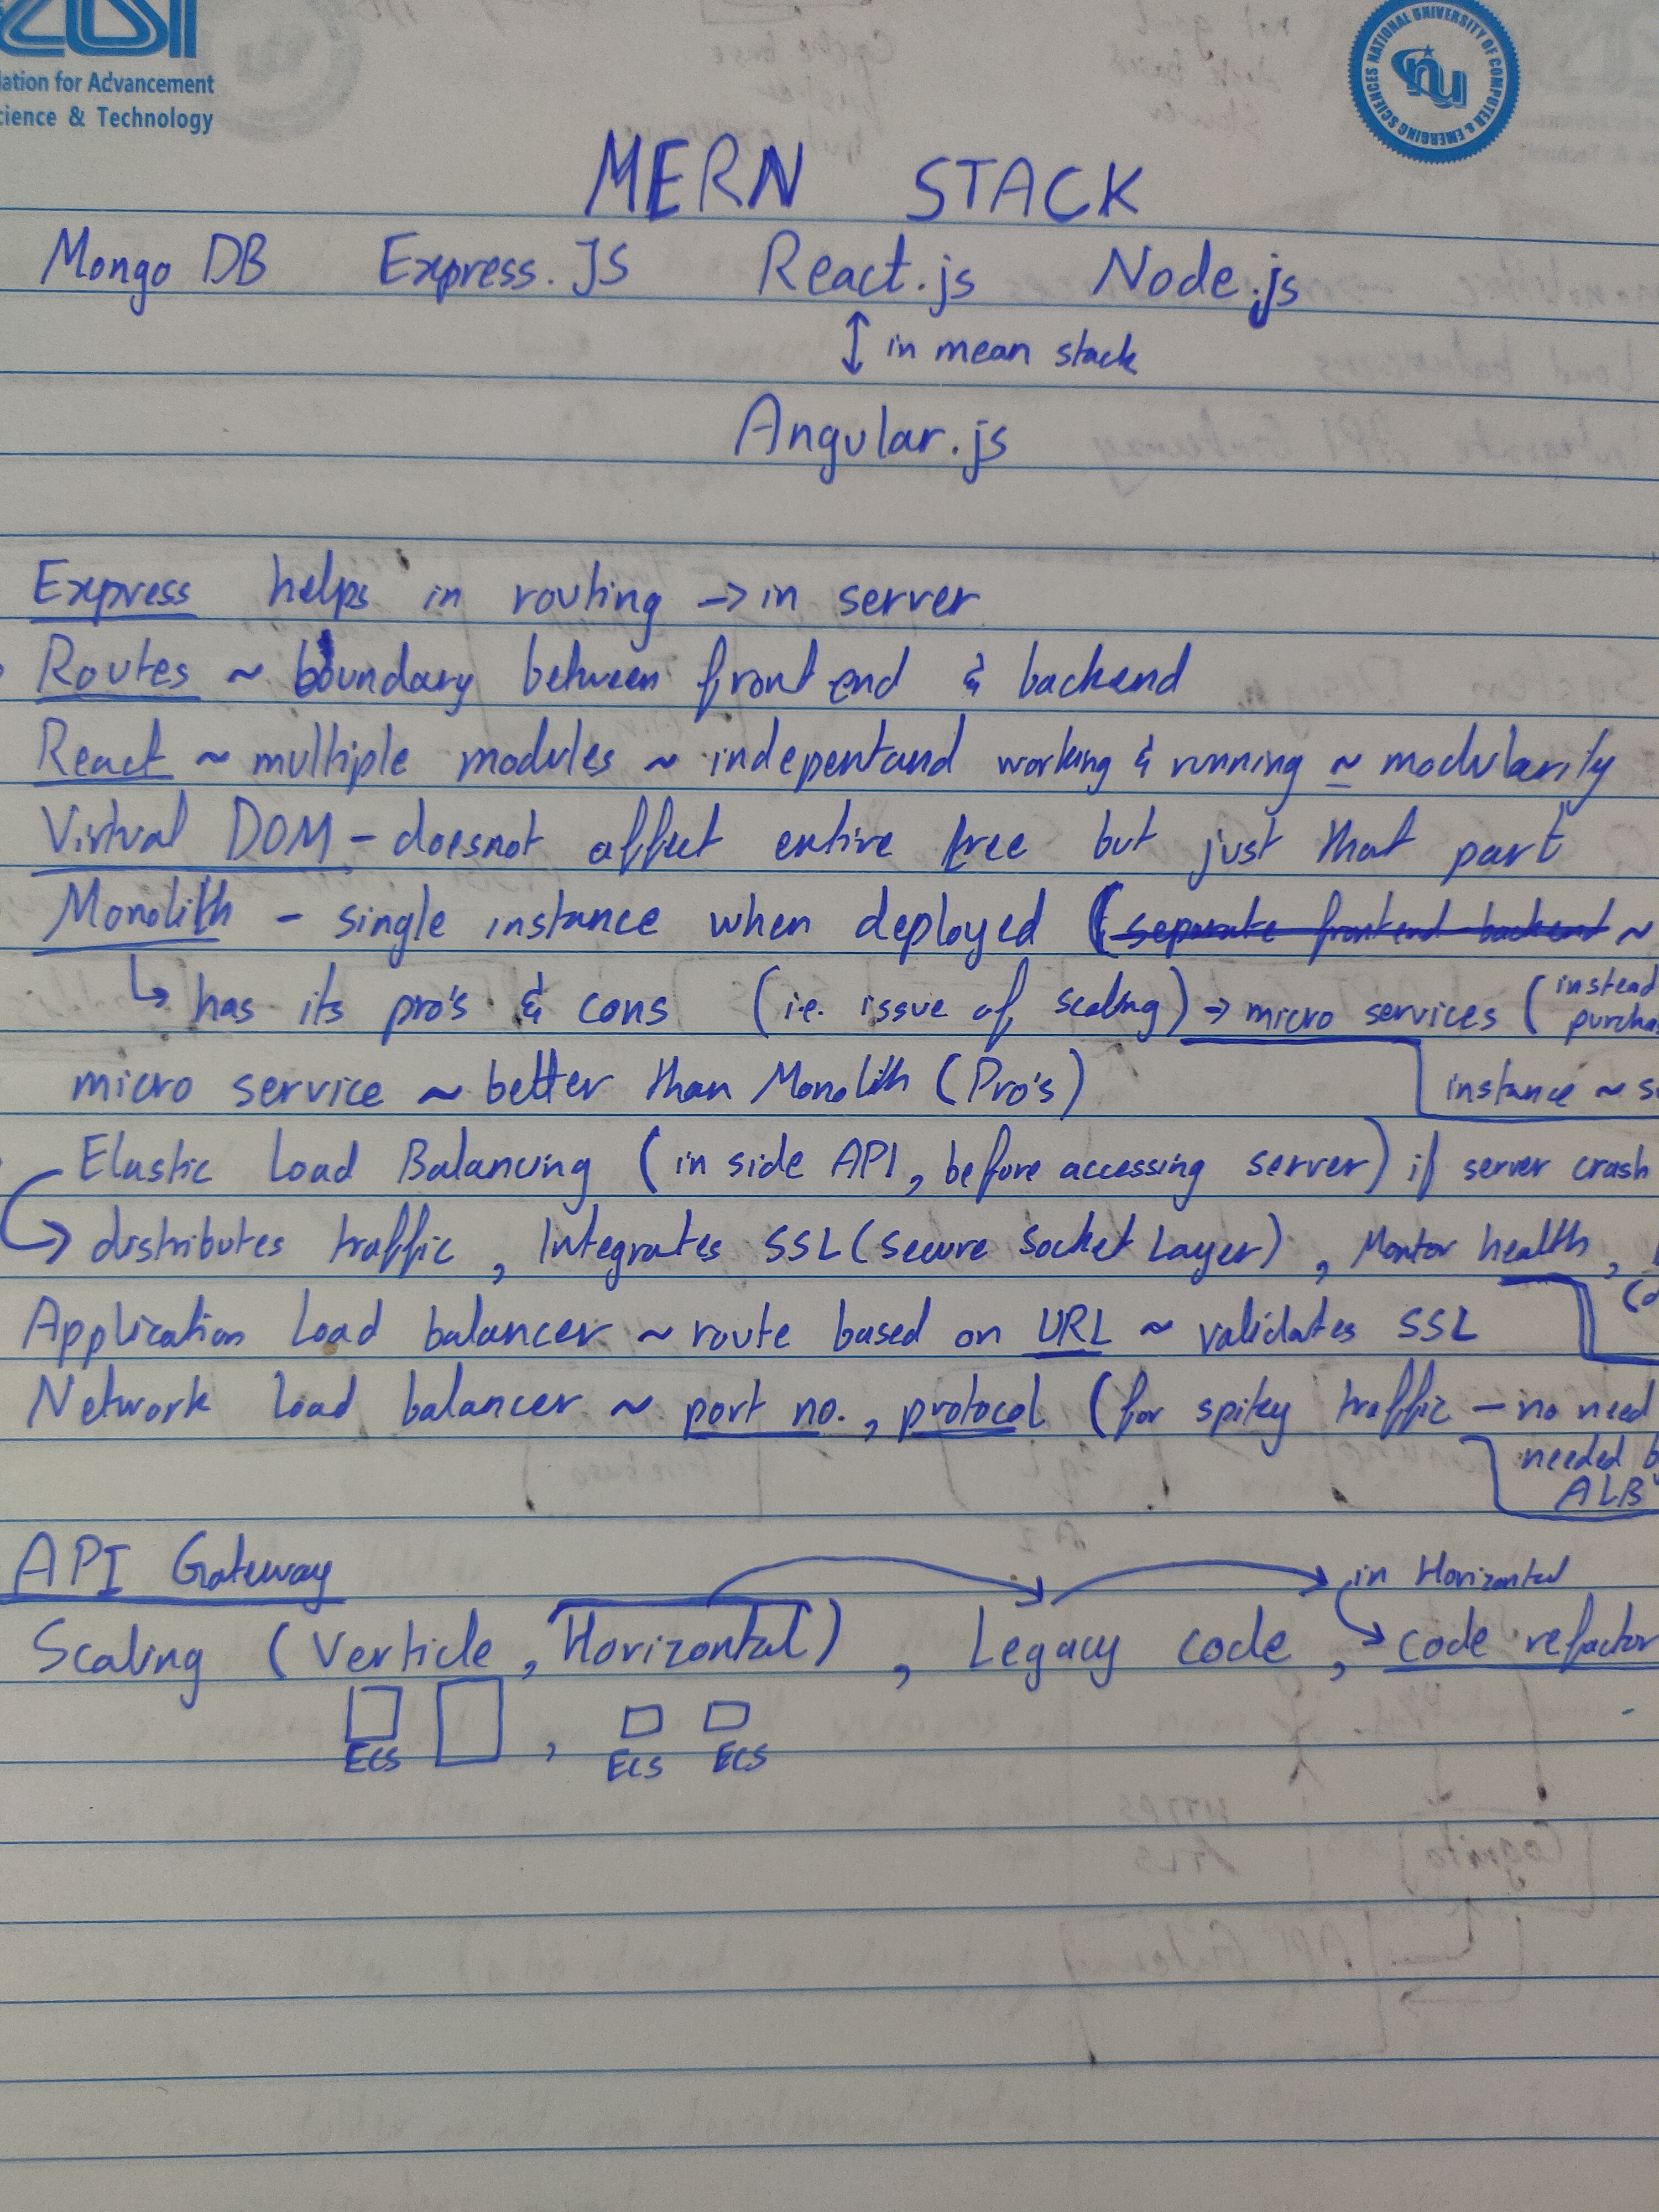 lation for Advancement
cience & Technology
NATIONAL UNIVERSITY OF COMPUTER & EMERGING SCIENCES
nu
MERN STACK
Mongo DB Express.JS React.js Node.js
↕ in mean stack
Angular.js
Express helps in routing -> in server
Routes ~ boundary between front end & backend
React ~ multiple modules ~ indepentand working & running ~ modularity
Virtual DOM - doesnot affect entire tree but just that part
Monolith - single instance when deployed (separate frontend backend ~
↳ has its pro's & cons (i.e. issue of scaling) -> micro services (instead
purcha
micro service ~ better than Monolith (Pro's) instance ~ s
Elastic Load Balancing (in side API, before accessing server) if server crash
-> distributes traffic, Integrates SSL (Secure Socket Layer), Montor health,
Application Load balancer ~ route based on URL ~ validates SSL
Network Load balancer ~ port no., protocol (for spiky traffic - no need
needed b
ALB
API Gateway in Horizontal
Scaling (Verticle, Horizontal), Legacy code, code refactor
ECS , ECS ECS